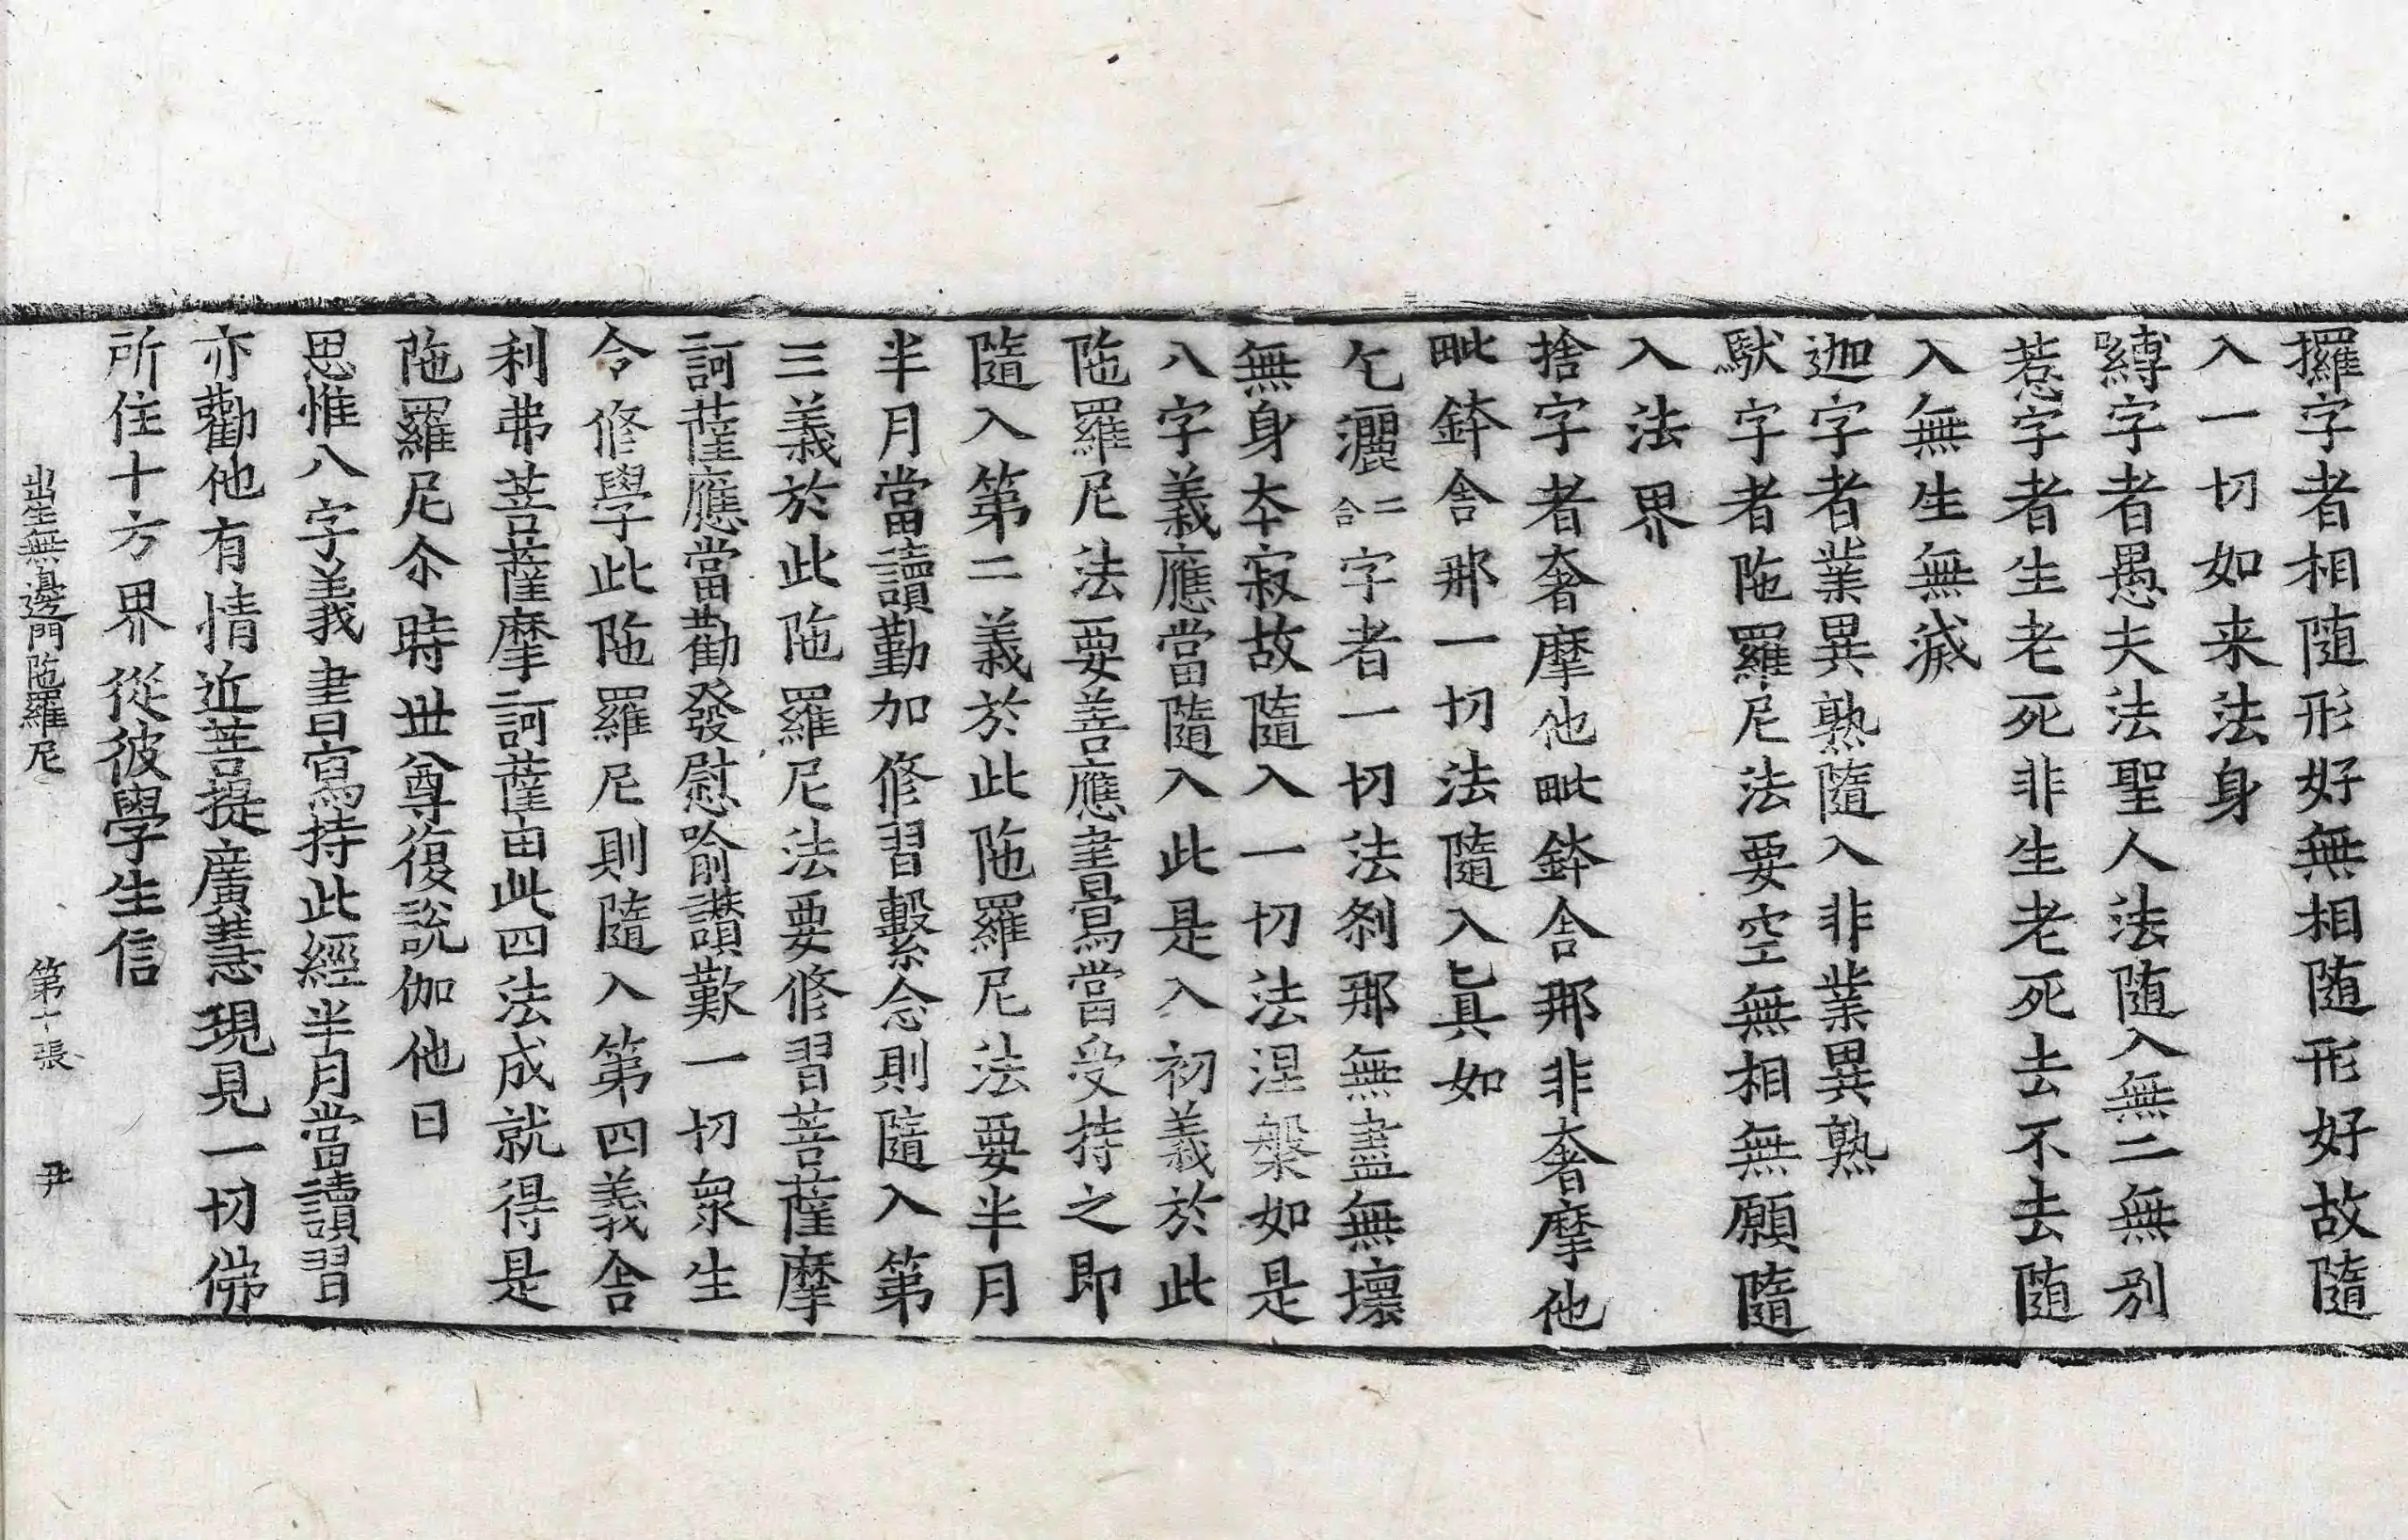 攞字者相随形好無相随形好故隨
入一切如来法身
嚩字者愚夫法聖人法随入無二無別
惹字者生老死非生老死去不去随
入無生無滅
迦字者業異熟隨入非業異熟
䭾字者陁羅尼法要空無相無願隨
入法界
捨字者奢摩他毗鉢舍那非奢摩他
毗鉢舍那一切法隨入眞如
乞灑二合字者一切法刹那無盡無壞
無身夲寂故隨入一切法涅槃如是
八字義應當隨入此是入初義於此
陁羅尼法要善應書寫當受持之即
隨入第二義於此陁羅尼法要半月
半月當讀勤加修習繫念則隨入第
三義於此陁羅尼法要修習菩薩摩
訶薩應當勸發慰喻讃歎一切衆生
令修學此陁羅尼則隨入第四義舍
利弗菩薩摩訶薩由此四法成就得是
陁羅尼尒時世尊復說伽他曰
思惟八字義書寫持此經半月當讀習
亦勸他有情近菩提廣慧現見一切佛
所住十方界從彼學生信
出生無邊門陁羅尼　第十張　尹